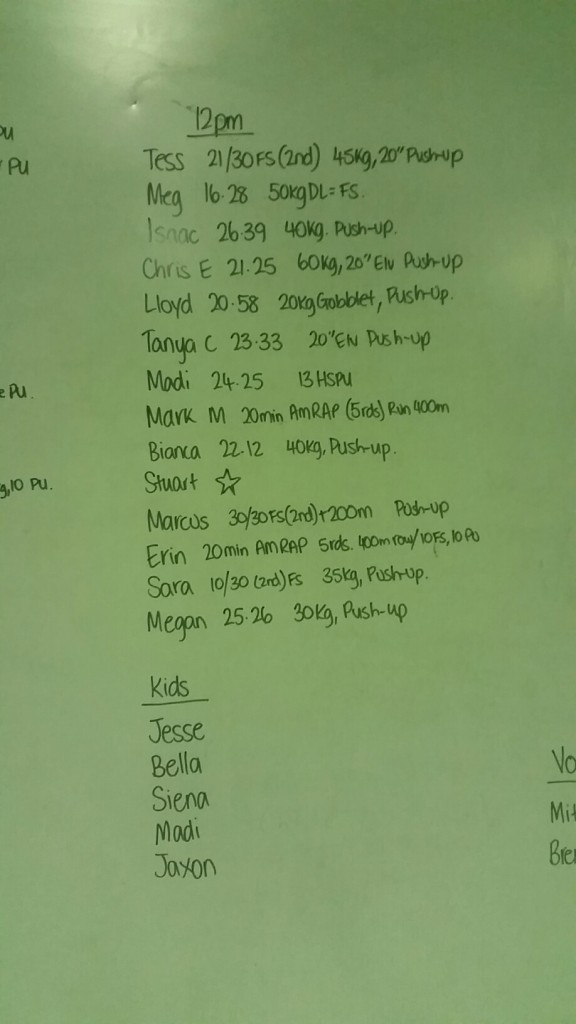 PU
PU
e PU.
g,10 PU.
12pm
Tess 21/30FS(2nd) 45kg, 20" Push-up
Meg 16.28 50kgDL=FS.
Isaac 26.39 40kg. Push-up.
Chris E 21.25 60kg, 20" EN Push-up
Lloyd 20.58 20kg Gobblet, Push-Up.
Tanya C 23.33 20"EN Push-up
Madi 24.25 13 HSPU
Mark M 20min AmRAP (5rds) Run 400m
Bianca 22.12 40kg, Push-up.
Stuart ☆
Marcus 30/30FS(2nd)+200m Push-up
Erin 20min AMRAP 5rds. 400m row/10FS, 10 PU
Sara 10/30 (2nd) FS 35kg, Push-up.
Megan 25.26 30kg, Push-up
Kids
Jesse
Bella
Siena
Madi
Jaxon
Vo
Mit
Bre